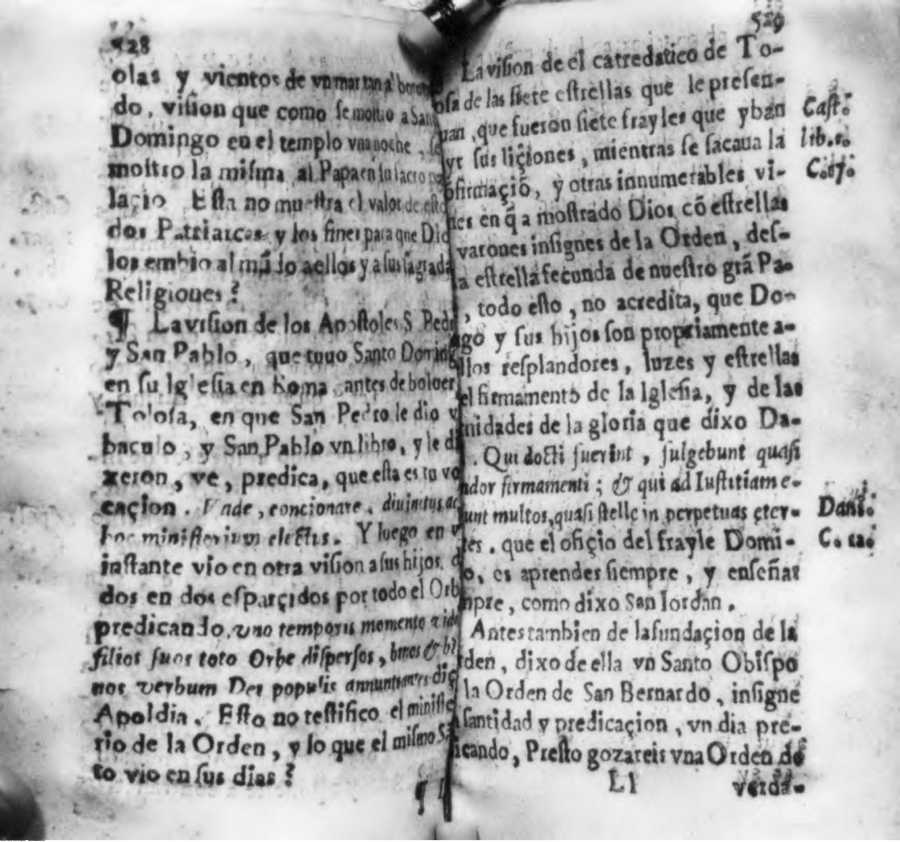 528
olas y vientos de vn mar tan al
do, vision que como se mostro a San
Domingo en el templo vna noche, se
mostro la misma al Papa en su sacro pa
lacio. Esta no muestra el valor de estos
dos Patriarcas y los fines para que Dio
los embio al mũdo a ellos y a sus sagrada
Religiones?
¶ La vision de los Apostoles S. Ped
y San Pablo, que tuuo Santo Domin
en su Iglesia en Roma antes de boluer
Tolosa, en que San Pedro le dio v
baculo, y San Pablo vn libro, y le di
xeron, ve, predica, que esta es tu vo
caçion. Vade, concionare, diuinitus ad
hoc ministerium electus. Y luego en v
instante vio en otra vision a sus hijos, d
dos en dos esparçidos por todo el Orb
predicando, vno temporis momento vide
filios suos toto Orbe dispersos, binos & bi
nos verbum Dei populis annuntiantes diç
Apoldia. Esto no testifico el ministe
rio de la Orden, y lo que el mismo Sã
to vio en sus dias?
529
La vision de el catredatico de To-
osa de las siete estrellas que le presen-
uan, que fueron siete frayles que yban
yr sus liçiones, mientras se sacaua la
ofirmaçiõ, y otras innumerables vi-
nes en q̃ a mostrado Dios cõ estrellas
varones insignes de la Orden, des-
a estrella fecunda de nuestro grã Pa-
, todo esto, no acredita, que Do-
ngo y sus hijos son propriamente a-
llos resplandores, luzes y estrellas
el firmamento de la Iglesia, y de las
nidades de la gloria que dixo Da-
. Qui docti fuerint, fulgebunt quasi
ndor firmamenti; & qui ad Iustitiam e-
unt multos, quasi stelle in perpetuas çter-
tes. que el ofiçio del frayle Domi-
o, es aprender siempre, y enseñar
mpre, como dixo San Iordan.
Antes tambien de la fundaçion de la
rden, dixo de ella vn Santo Obispo
la Orden de San Bernardo, insigne
santidad y predicaçion, vn dia pre-
icando, Presto gozareis vna Orden de
Ll
verda-
Cast.
lib.
Dani.